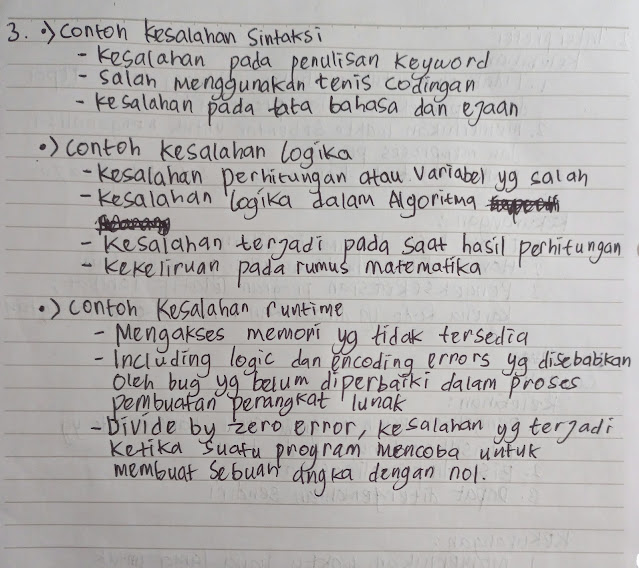 3. •) Contoh Kesalahan Sintaksi
- Kesalahan pada penulisan Keyword
- Salah menggunakan tenis codingan
- Kesalahan pada tata bahasa dan ejaan
•) Contoh Kesalahan Logika
- Kesalahan perhitungan atau Variabel yg salah
- Kesalahan logika dalam Algoritma
- Kesalahan terjadi pada saat hasil perhitungan
- Kekeliruan pada rumus matematika
•) Contoh Kesalahan runtime
- Mengakses memori yg tidak tersedia
- Including logic dan encoding errors yg disebabkan
oleh bug yg belum diperbaiki dalam proses
pembuatan perangkat lunak
- Divide by zero error, kesalahan yg terjadi
ketika suatu program mencoba untuk
membuat sebuah angka dengan nol.